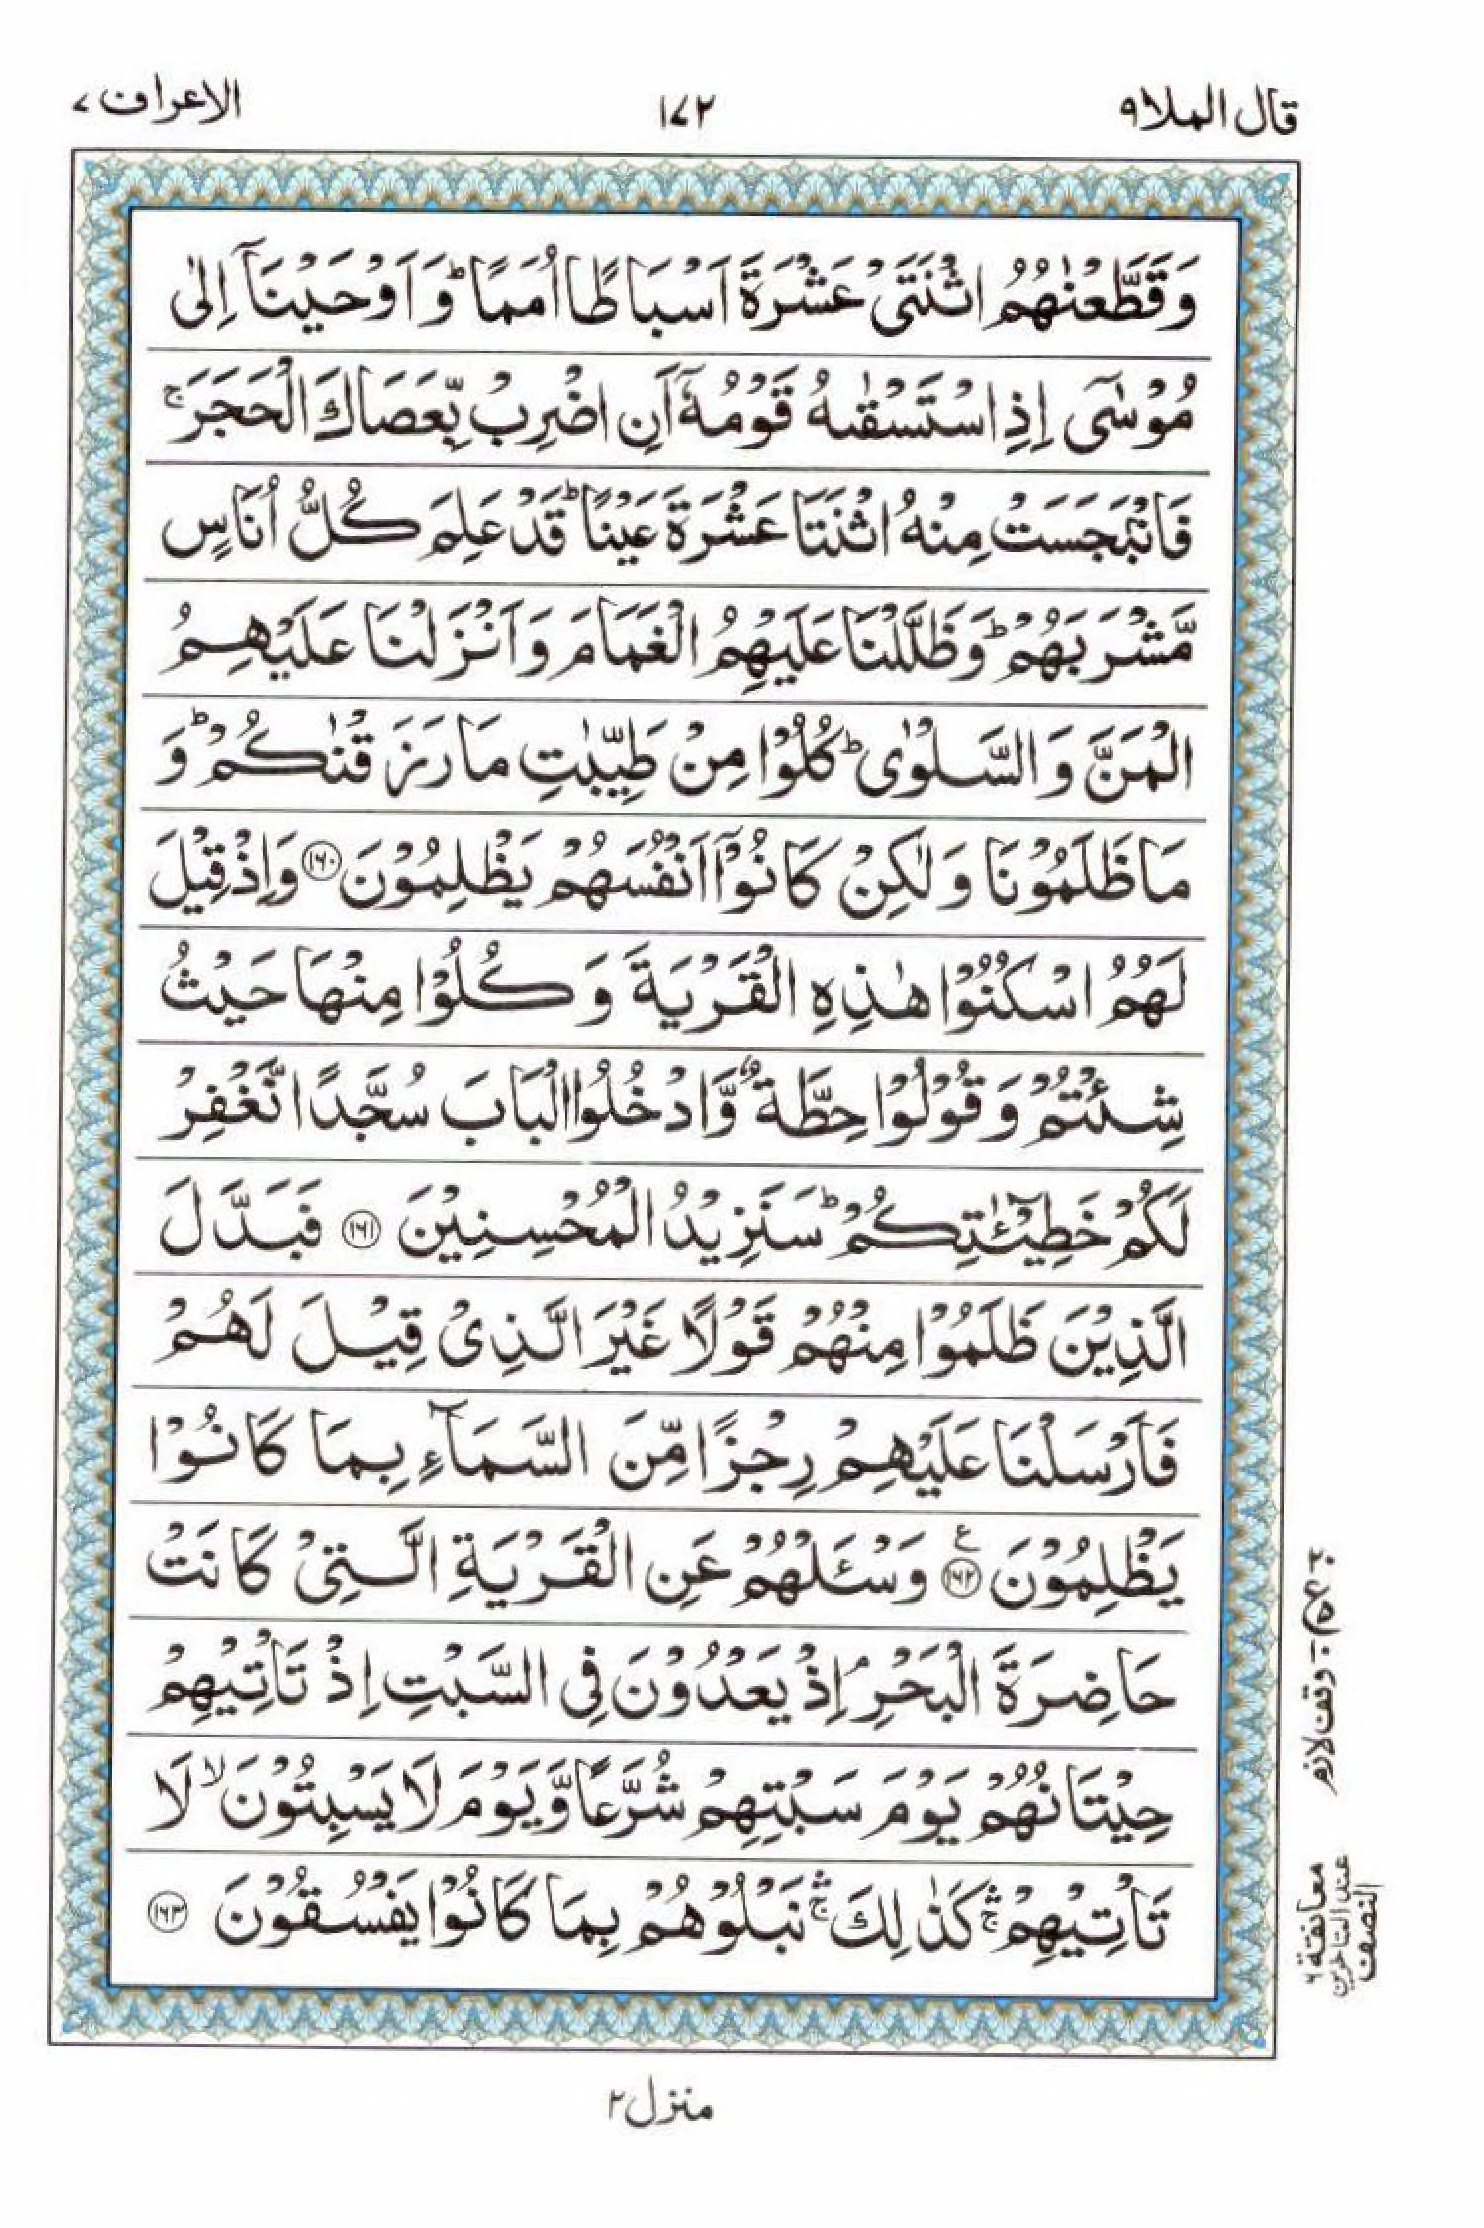 قال الملا ٩
١٧٢
الاعراف ٧
وَقَطَّعْنٰهُمُ اثْنَتَىْ عَشْرَةَ اَسْبَاطًا اُمَمًا ؕ وَاَوْحَيْنَاۤ اِلٰى
مُوْسٰۤى اِذِ اسْتَسْقٰىهُ قَوْمُهٗۤ اَنِ اضْرِبْ بِّعَصَاكَ الْحَجَرَ ۚ
فَانْۢبَجَسَتْ مِنْهُ اثْنَتَا عَشْرَةَ عَيْنًا ؕ قَدْ عَلِمَ كُلُّ اُنَاسٍ
مَّشْرَبَهُمْ ؕ وَظَلَّلْنَا عَلَيْهِمُ الْغَمَامَ وَاَنْزَلْنَا عَلَيْهِمُ
الْمَنَّ وَالسَّلْوٰى ؕ كُلُوْا مِنْ طَيِّبٰتِ مَا رَزَقْنٰكُمْ ؕ وَ
مَا ظَلَمُوْنَا وَلٰكِنْ كَانُوْۤا اَنْفُسَهُمْ يَظْلِمُوْنَ ﴿١٦٠﴾ وَاِذْ قِيْلَ
لَهُمُ اسْكُنُوْا هٰذِهِ الْقَرْيَةَ وَكُلُوْا مِنْهَا حَيْثُ
شِئْتُمْ وَقُوْلُوْا حِطَّةٌ وَّادْخُلُوا الْبَابَ سُجَّدًا نَّغْفِرْ
لَكُمْ خَطِيْٓـٰٔتِكُمْ ؕ سَنَزِيْدُ الْمُحْسِنِيْنَ ﴿١٦١﴾ فَبَدَّلَ
الَّذِيْنَ ظَلَمُوْا مِنْهُمْ قَوْلًا غَيْرَ الَّذِىْ قِيْلَ لَهُمْ
فَاَرْسَلْنَا عَلَيْهِمْ رِجْزًا مِّنَ السَّمَآءِ بِمَا كَانُوْا
يَظْلِمُوْنَ ﴿١٦٢﴾ ع وَسْـَٔلْهُمْ عَنِ الْقَرْيَةِ الَّتِىْ كَانَتْ
حَاضِرَةَ الْبَحْرِ ۘ اِذْ يَعْدُوْنَ فِى السَّبْتِ اِذْ تَاْتِيْهِمْ
حِيْتَانُهُمْ يَوْمَ سَبْتِهِمْ شُرَّعًا وَّيَوْمَ لَا يَسْبِتُوْنَ ۙ لَا
تَاْتِيْهِمْ ۛۚ كَذٰلِكَ ۛۚ نَبْلُوْهُمْ بِمَا كَانُوْا يَفْسُقُوْنَ ﴿١٦٣﴾
وقف لازم
معانقة ٦
عند المتاخرين
النصف
منزل ٢